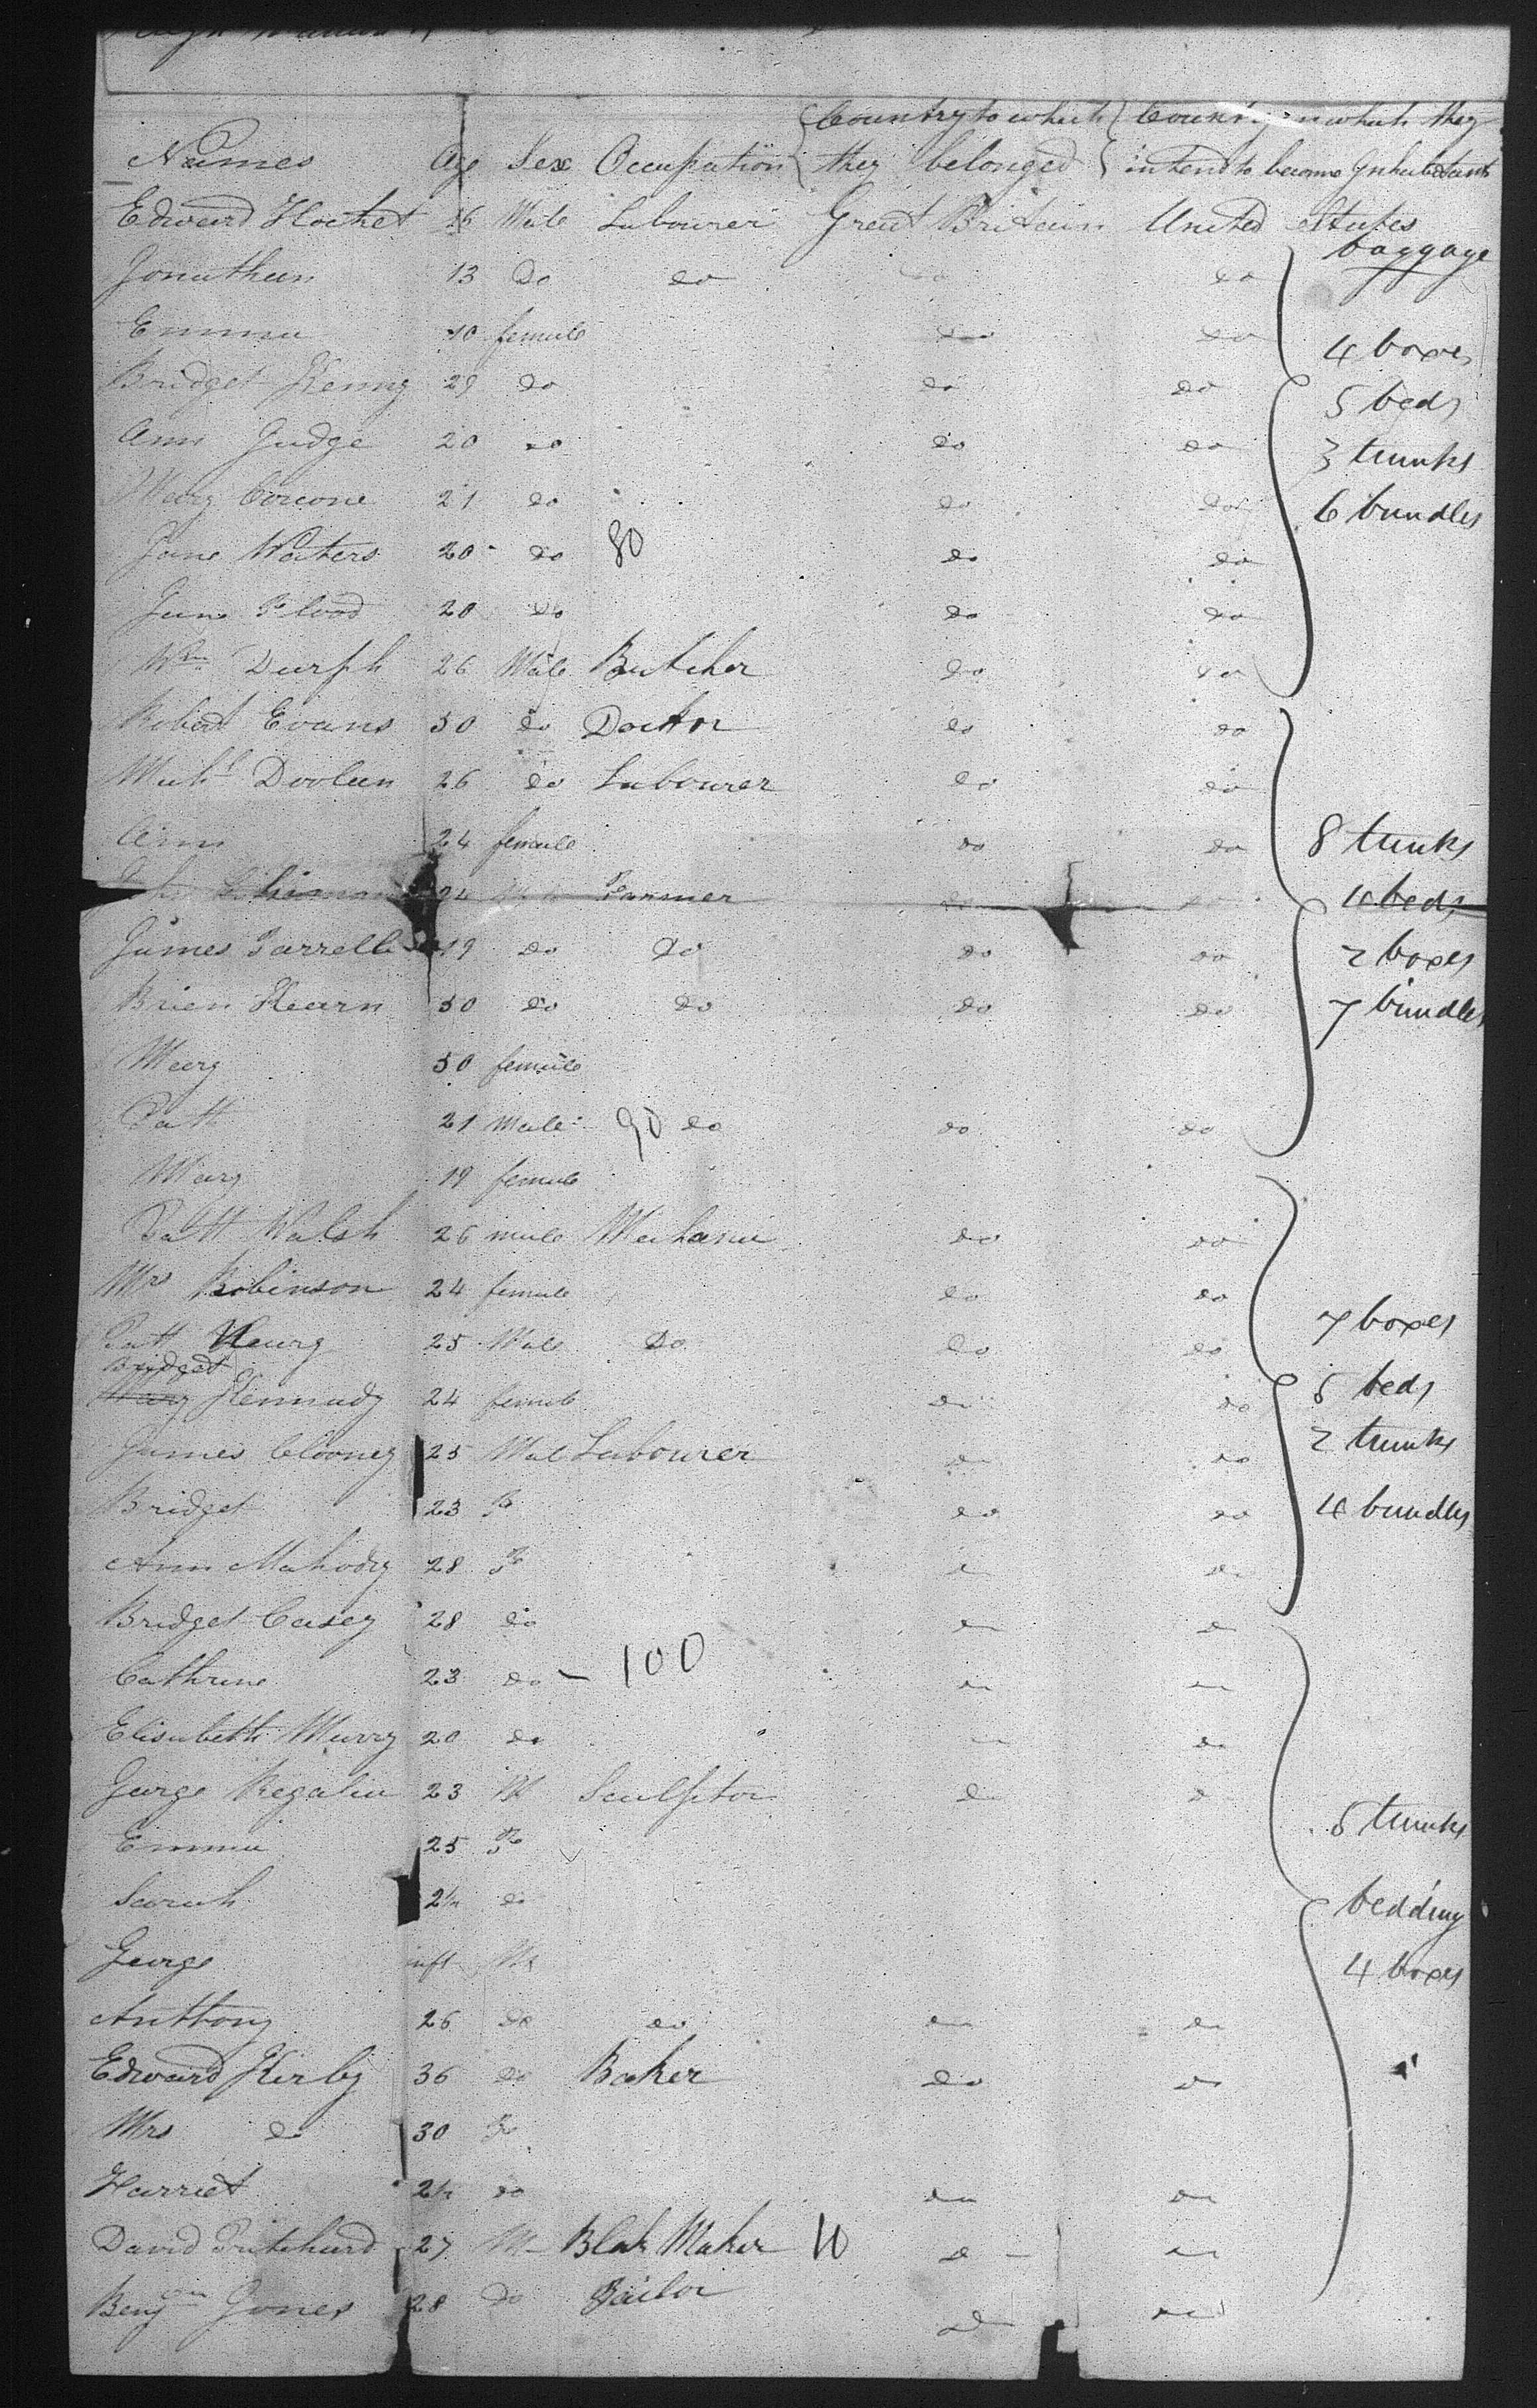 Country to which Country in which they
Names Age Sex Occupation they belonged intend to become Inhabitants
Edward Hocket 16 Male Labourer Great Britain United States
baggage
Jonathan 13 Do do do do
Emma 10 female do do
4 boxes
Bridget Kenny 29 do do do
5 beds
Ann Judge 20 do do do
3 trunks
Mary Corcone 21 do do do
6 bundles
Jane Waters 20 do 80 do do
Jane Flood 20 do do do
Wm Durph 26 Male Butcher do do
Robert Evans 50 do Docktor do do
Michl Doolan 26 do Labourer do do
Ann 24 female do do
8 trunks
24 Farmer do do
4 beds
James Farrell 19 do do do do
2 boxes
Brien Hearn 50 do do do do
7 bundles
Mary 50 female
Patt 21 Male 90 do do do
Mary 19 female
Patt Walsh 26 male Mechanic do do
Mrs Robinson 24 female do do
7 boxes
Patt 25 Male Do do do
Bridget
Mary Kennady 24 female do do
5 beds
James Clooney 25 Mal Labourer do do
2 trunks
Bridget 23 F do do
4 bundles
Ann Mahody 28 F do do
Bridget Casey 28 do do do
Cathrine 23 do - 100 do do
Elisabeth Murry 20 do do do
George Regalia 23 M Sculptor do do
5 trunks
Emma 25 F
Sarah 2½ do
bedding
George inft M
4 boxes
Anthony 26 do do do do
Edward Kirby 36 do Baker do do
Mrs do 30 F
Harriet 2½ do do do
David Pritchard 27 M Blok Maker 10 do do
Benjmn Jones 28 do Tailor do do